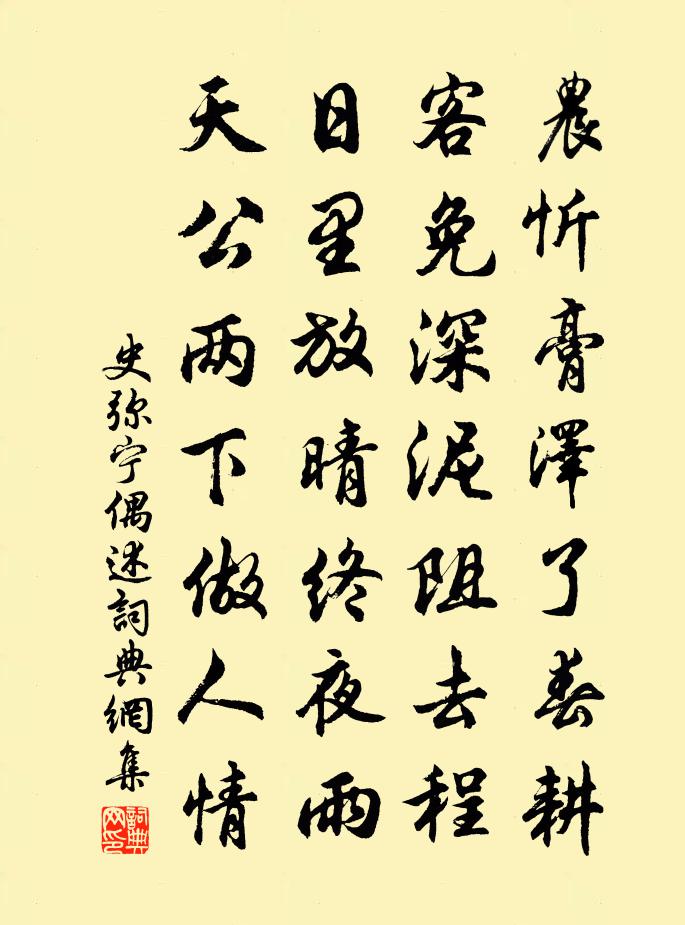 農忻膏澤了春耕
客免深泥阻去程
日里放晴终夜雨
天公两下做人情
史弥宁偶述詞典網集
詞典网印